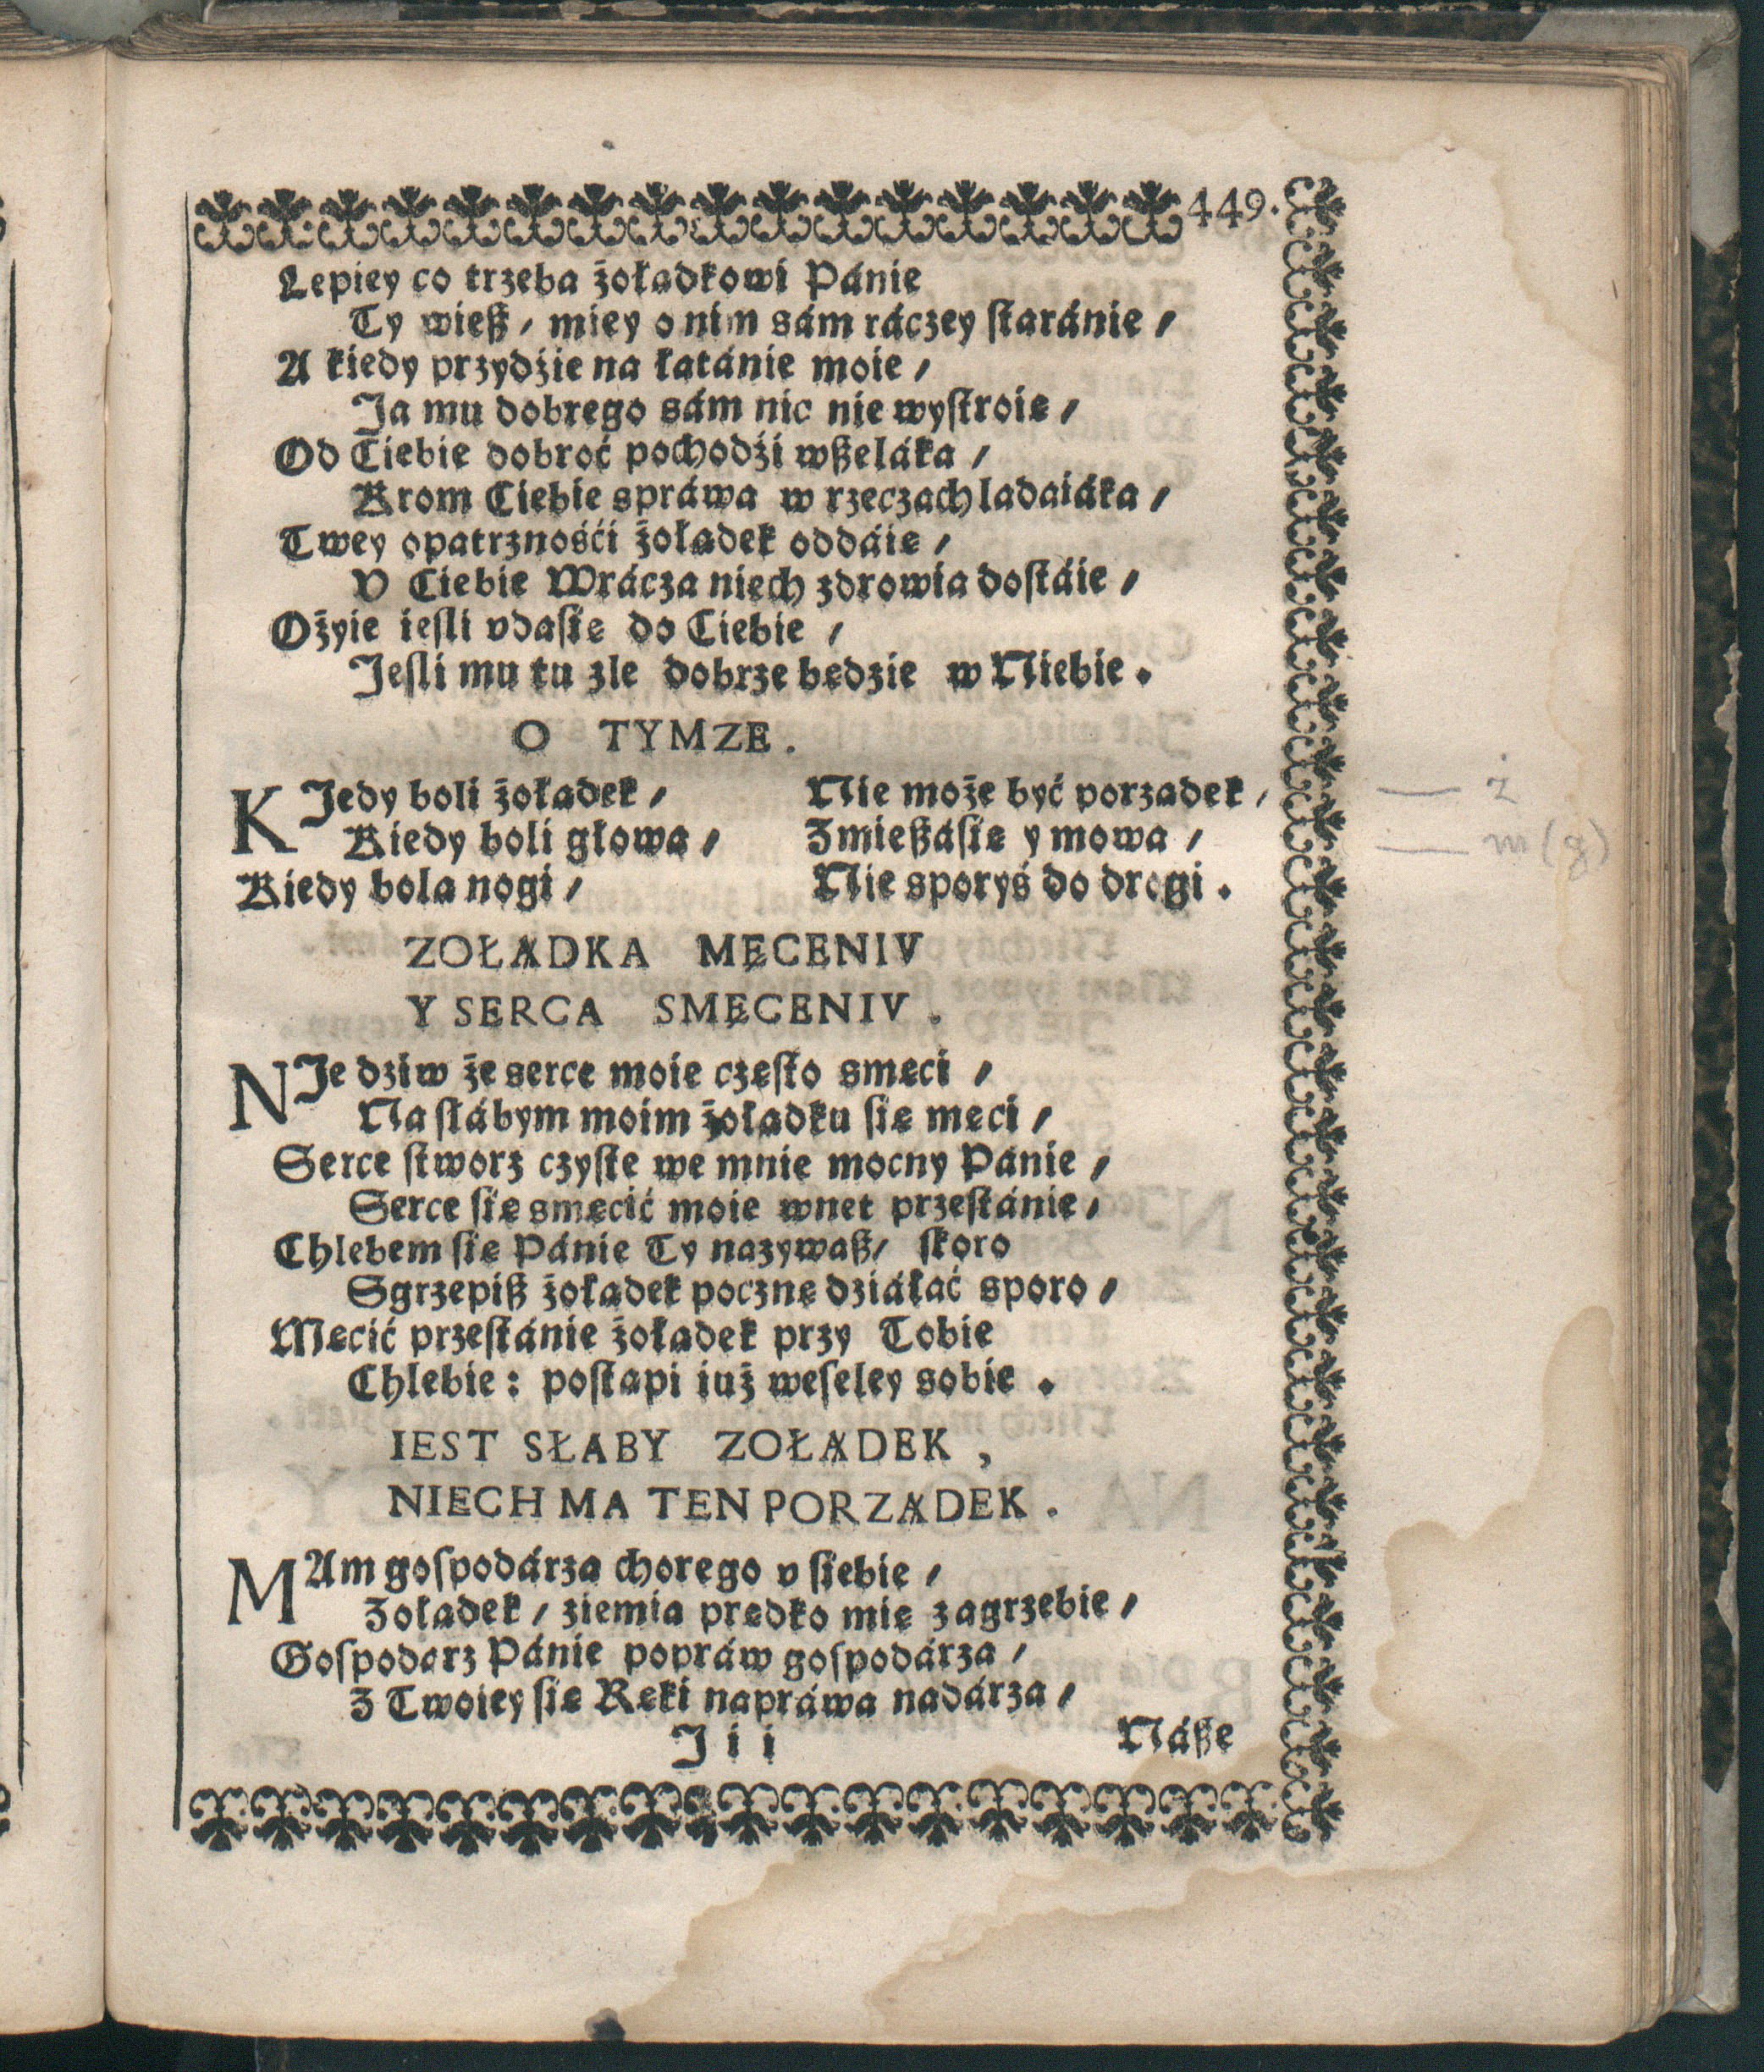 449.
Lepiey co trzeba żołądkowi Pánie
Ty wieß / miey o nim sám ráczey ſtaránie /
A kiedy przydźie na łatánie moie /
Ja mu dobrego sám nic nie wyſtroię /
Od Ciebie dobroć pochodźi wßeláka /
Krom Ciebie spráwa w rzeczach ladaiáka /
Twey opatrznośći żołądek oddáię /
V Ciebie Wrácza niech zdrowia doſtáie /
Ożyie ieſli vdaſię do Ciebie /
Jeſli mu tu zle dobrze będzie w Niebie.
O TYMZE.
KJedy boli żołądek / Nie może być porządek /
Kiedy boli głowa / Zmießáſię y mowa /
Kiedy bolą nogi / Nie sporyś do drogi.
ZOŁĄDKA MĘCENIV
Y SERCA SMĘCENIV.
NJe dziw że serce moie częſto smęci /
Na słábym moim żołądku ſię męci /
Serce ſtworz czyſte we mnie mocny Pánie /
Serce ſię smęcić moie wnet przeſtánie /
Chlebem ſię Pánie Ty nazywaß / ſkoro
Sgrzepiß żołądek pocznę dziáłáć sporo /
Męcić przeſtánie żołądek przy Tobie
Chlebie: poſtąpi iuż weſeley sobie.
IEST SŁABY ZOŁĄDEK,
NIECH MA TEN PORZĄDEK.
MAm goſpodárza chorego v ſiebie /
Zołądek / ziemia prędko mię zagrzebie /
Goſpodarz Pánie popráw goſpodárza /
Z Twoiey ſię Ręki napráwa nadárza /
J i i Náße
— ż
— m (g)